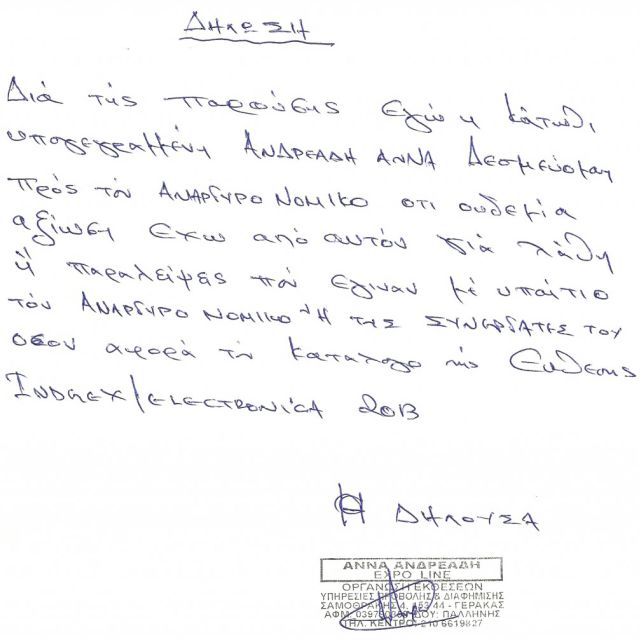 ΔΗΛΩΣΗ
Διά της παρούσης εγώ η κάτωθι
υπογεγραμμένη ΑΝΔΡΕΑΔΗ ΑΝΝΑ Δεσμεύομαι
προς τον ΑΝΑΡΓΥΡΟ ΝΟΜΙΚΟ οτι ουδεμία
αξίωση εχω από αυτόν γιά λάθη
ή παραλείψεις που εγιναν με υπαίτιο
τον ΑΝΑΡΓΥΡΟ ΝΟΜΙΚΟ ή της ΣΥΝΕΡΓΑΤΕΣ ΤΟΥ
οσον αφορά τον καταλογο της Εκθεσης
INDREX/ELECTRONICA 2013
Η ΔΗΛΟΥΣΑ
ΑΝΝΑ ΑΝΔΡΕΑΔΗ
EXPO LINE
ΟΡΓΑΝΩΣΗ ΕΚΘΕΣΕΩΝ
ΥΠΗΡΕΣΙΕΣ ΠΡΟΒΟΛΗΣ & ΔΙΑΦΗΜΙΣΗΣ
ΣΑΜΟΘΡΑΚΗΣ 4, 153 44 - ΓΕΡΑΚΑΣ
ΑΦΜ. ΔΟΥ: ΠΑΛΛΗΝΗΣ
ΤΗΛ. ΚΕΝΤΡΟ: 210 6619827